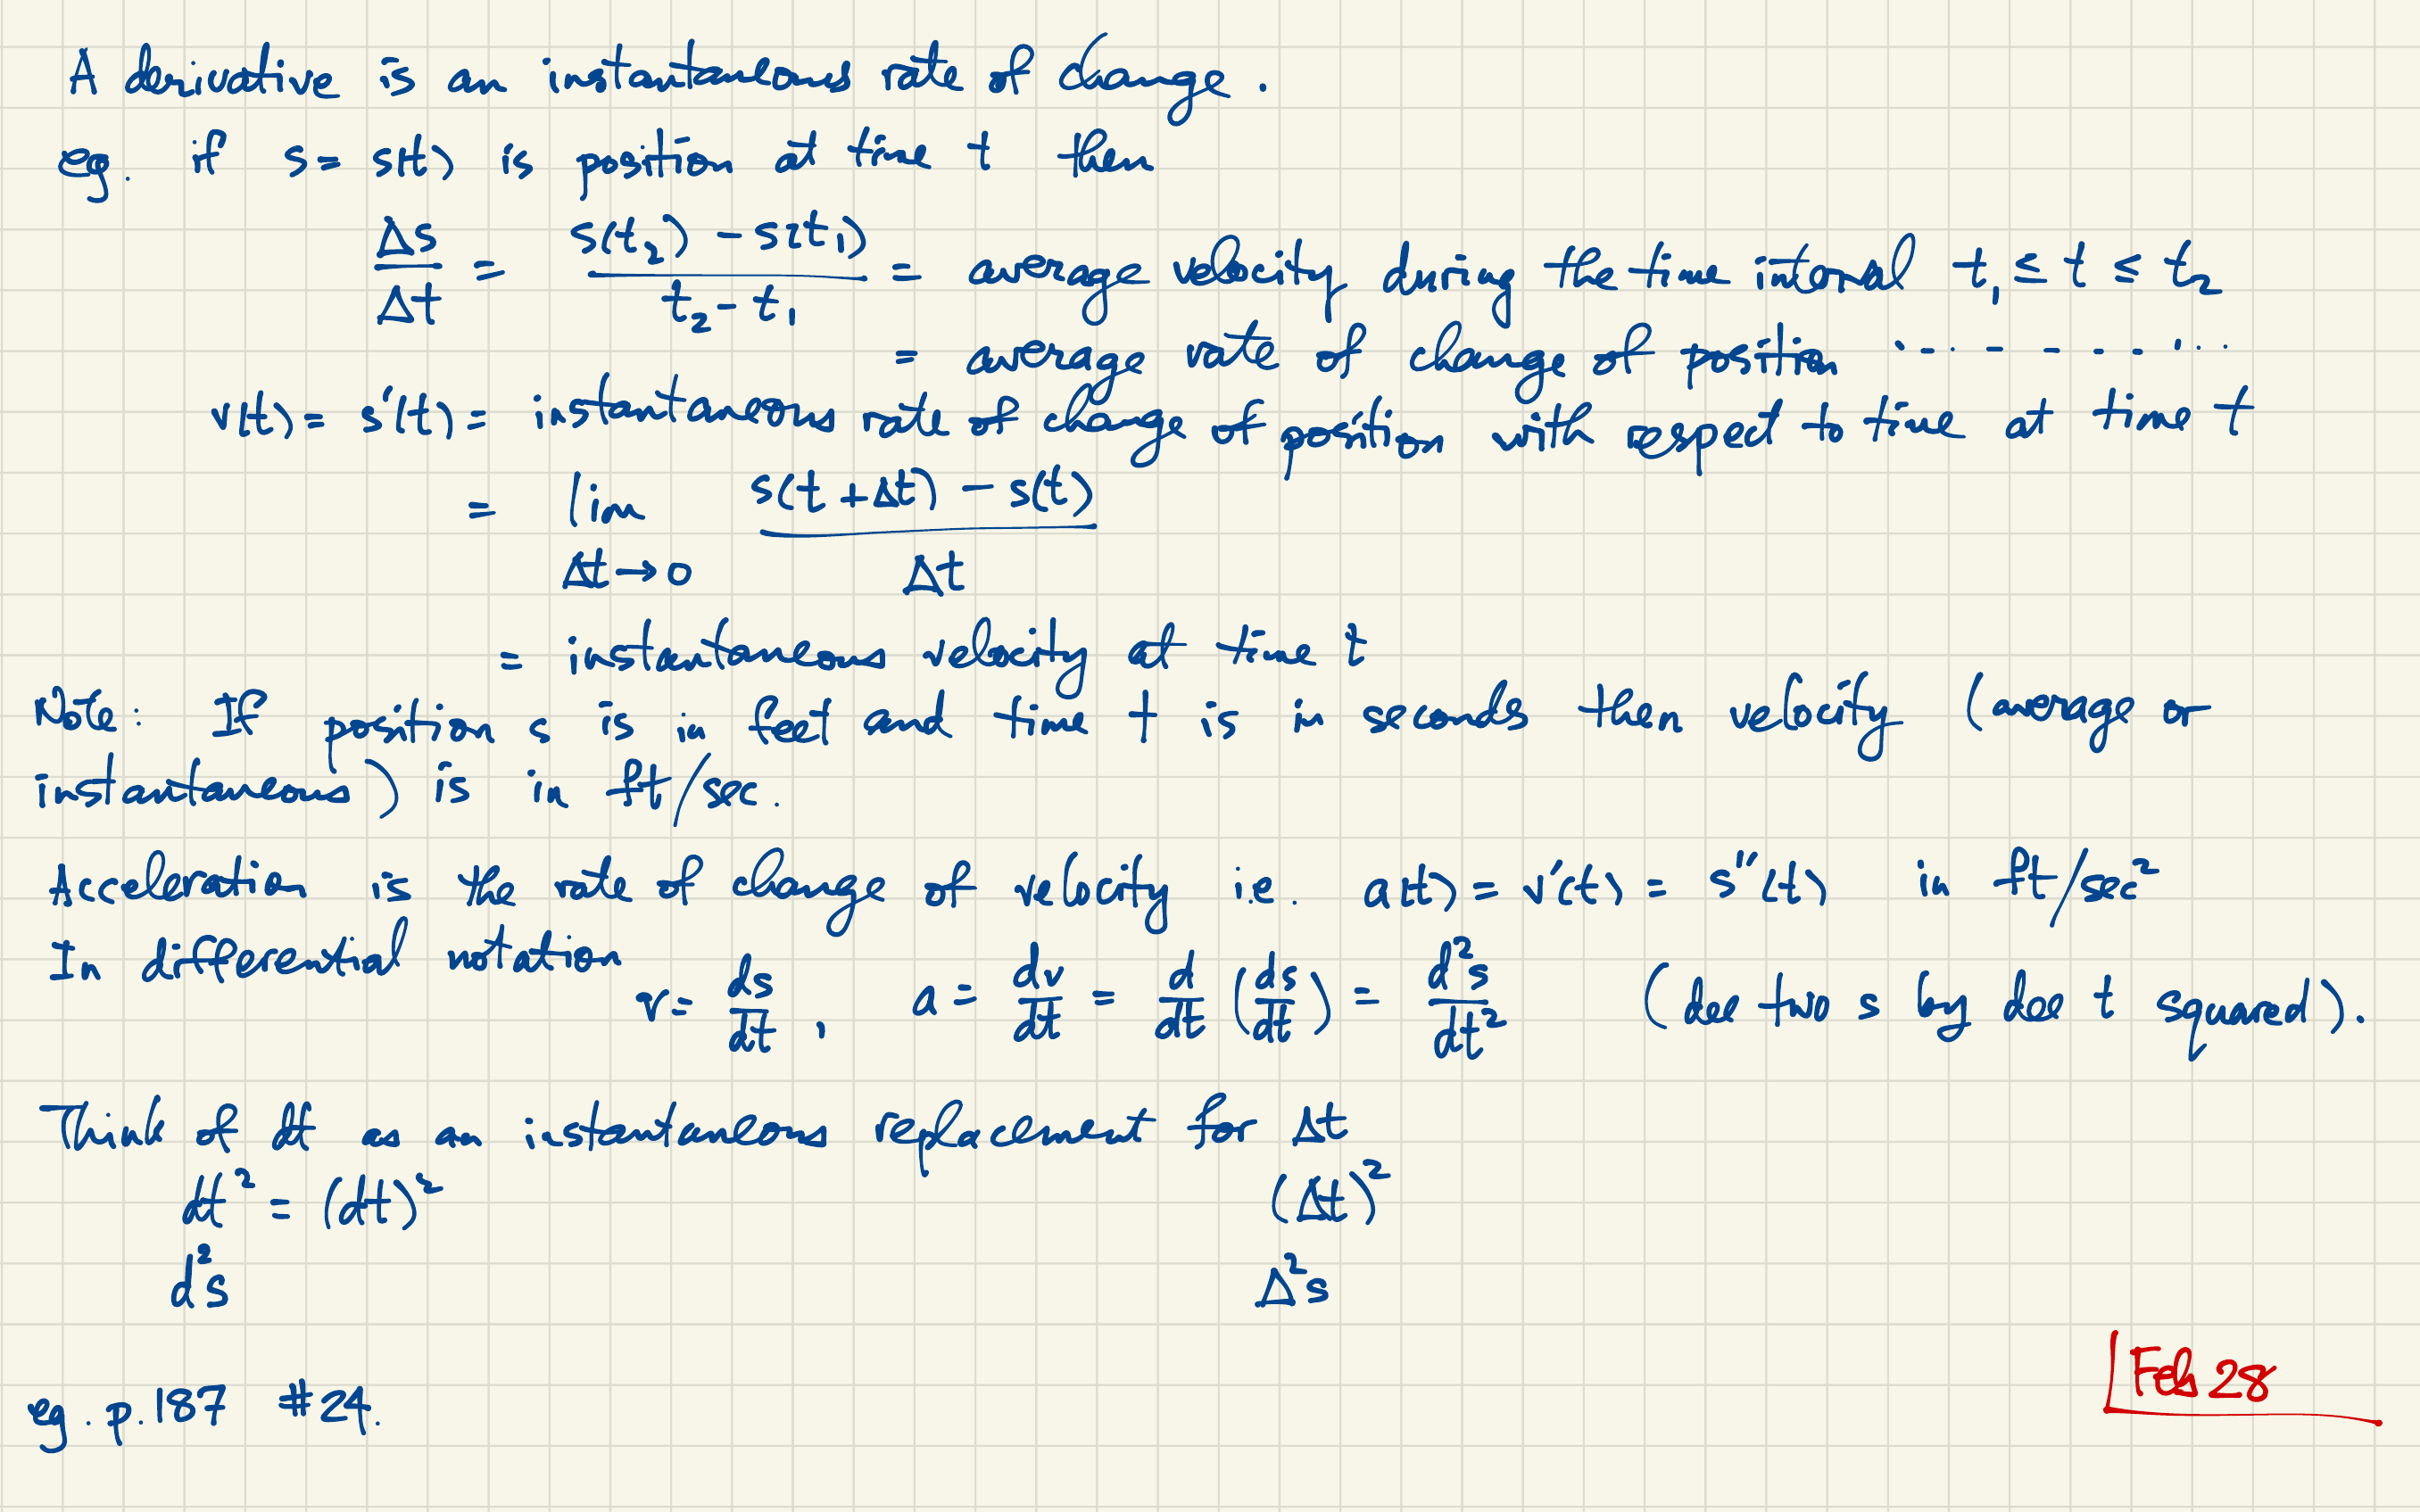 A derivative is an instantaneous rate of change.
eg. if s = s(t) is position at time t then
Δs/Δt = (s(t₂) - s(t₁))/(t₂ - t₁) = average velocity during the time interval t₁ ≤ t ≤ t₂
= average rate of change of position ..........
v(t) = s'(t) = instantaneous rate of change of position with respect to time at time t
= lim Δt→0 (s(t + Δt) - s(t))/Δt
= instantaneous velocity at time t
Note: If position s is in feet and time t is in seconds then velocity (average or
instantaneous) is in ft/sec.
Acceleration is the rate of change of velocity i.e. a(t) = v'(t) = s''(t) in ft/sec²
In differential notation
v = ds/dt, a = dv/dt = d/dt (ds/dt) = d²s/dt² (dee two s by dee t squared).
Think of dt as an instantaneous replacement for Δt
dt² = (dt)² (Δt)²
d²s Δ²s
Feb 28
eg. p.187 #24.